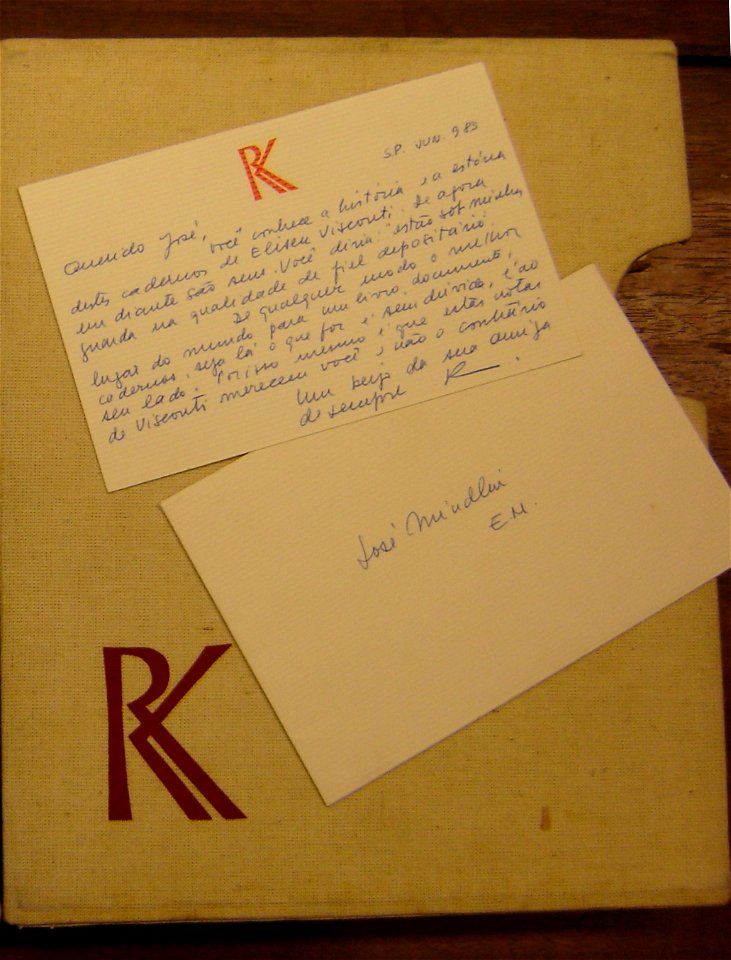 RK
S.P. JUN. 983
Querido José,
você conhece a história e a estória
destes cadernos de Eliseu Visconti. De agora
em diante são seus. Você diria: "estão sob minha
guarda na qualidade de fiel depositário".
De qualquer modo o melhor
lugar do mundo para um livro, documento,
cadernos, seja lá o que for é, sem dúvida, é ao
seu lado. Por isso mesmo é que estas notas
de Visconti merecem você e não o contrário
Um beijo da sua amiga
de sempre
José Mindlin
E.M.
RK